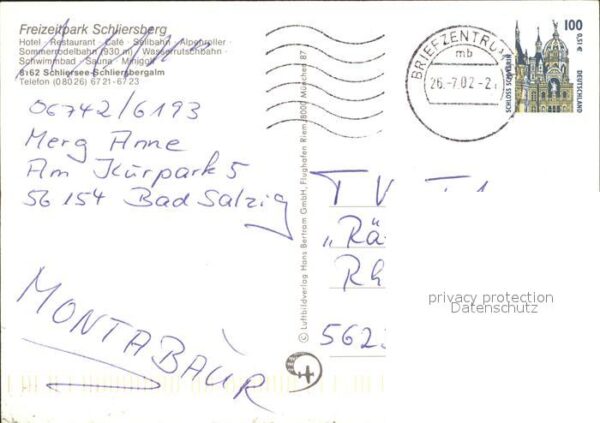 Freizeitpark Schliersberg
Hotel · Restaurant · Café · Seilbahn · Alpenroller ·
Sommerrodelbahn (930 m) · Wasserrutschbahn ·
Schwimmbad · Sauna · Minigolf
8162 Schliersee-Schliersbergalm
Telefon (0 80 26) 67 21 · 67 23
06742/6193
Merg Anne
Am Kurpark 5
56 154 Bad Salzig
MONTABAUR
© Luftbildverlag Hans Bertram GmbH, Flughafen Riem, 8000 München 87
BRIEFZENTRUM
mb
26.-7.02-2
100
0,51€
SCHLOSS SCHWERIN
DEUTSCHLAND
T V
„Rä
Rh
562
privacy protection
Datenschutz